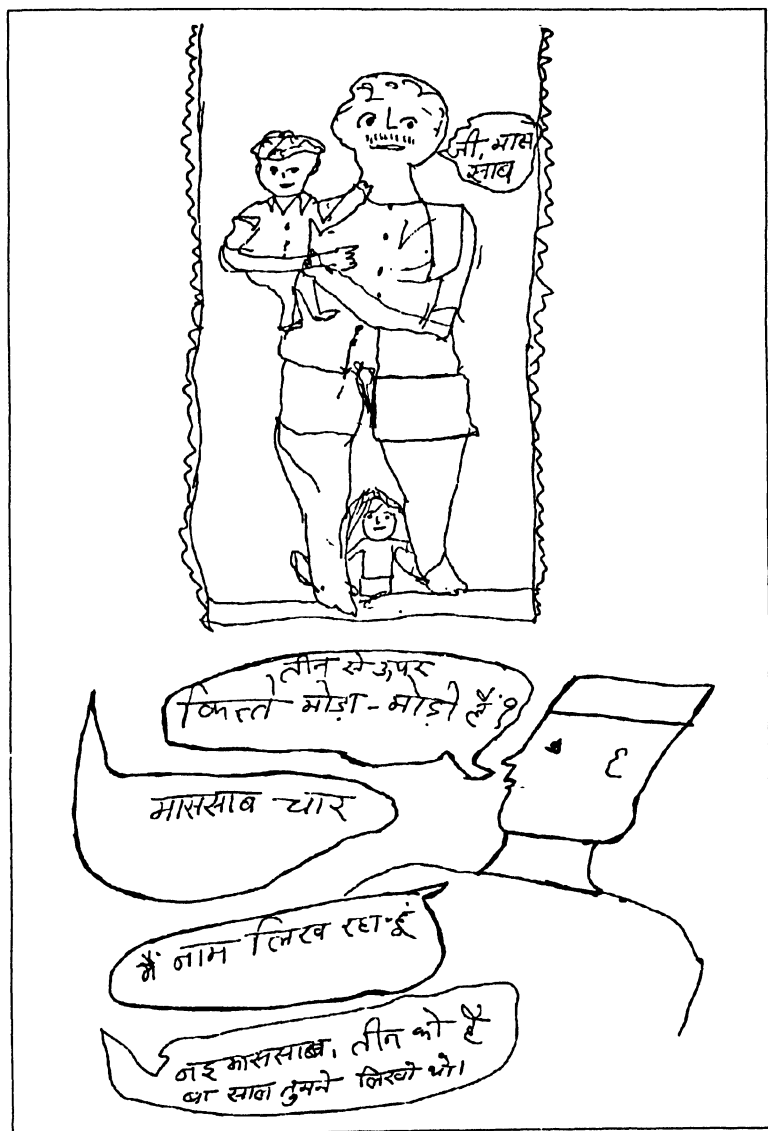 जी, मास
साब
तीन से ऊपर
कित्ते मोड़ा-मोड़ी हैं?
माससाब चार
मैं नाम लिख रहा-हूं
नइ माससाब, तीन को है
बा साल तुमने लिखो थो।